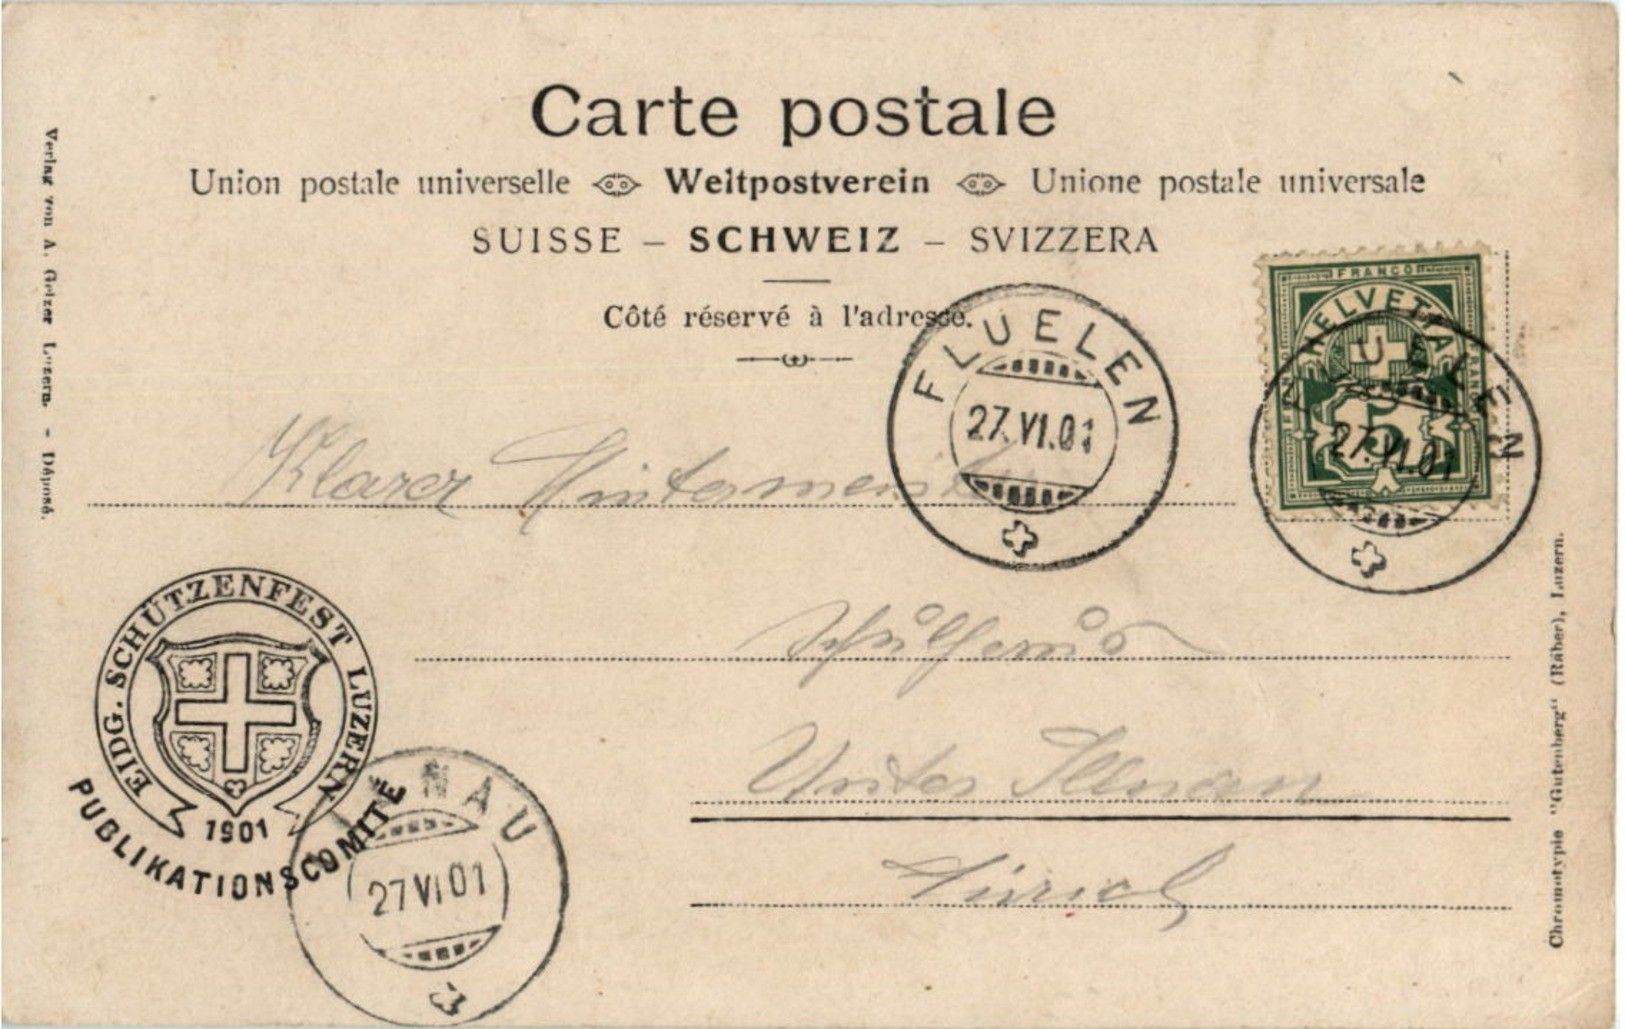 Carte postale
Union postale universelle Weltpostverein Unione postale universale
SUISSE – SCHWEIZ – SVIZZERA
Côté réservé à l'adresse.
Verlag von A. Gelzer Luzern. - Déposé.
FRANCO
HELVETIA
5
FLUELEN
27.VI.01
FLUELEN
27.VI.01
Klarer
Schulhaus
Unter Illnau
Zürich
EIDG. SCHÜTZENFEST LUZERN
1901
PUBLIKATIONSCOMITE
27 VI 01
Chromotypie "Gutenberg" (Räber), Luzern.